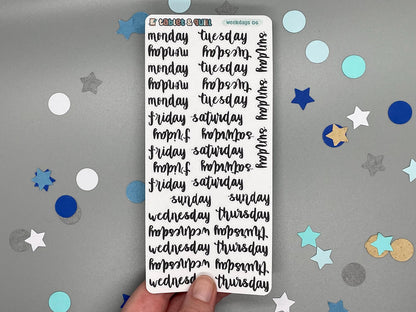 TABLET & QUILL weekdays 06
monday tuesday
monday tuesday
monday tuesday
monday tuesday
monday tuesday
sunday
sunday
sunday
friday saturday
friday saturday
friday saturday
friday saturday
friday saturday
sunday sunday
wednesday thursday
wednesday thursday
wednesday thursday
wednesday thursday
wednesday thursday